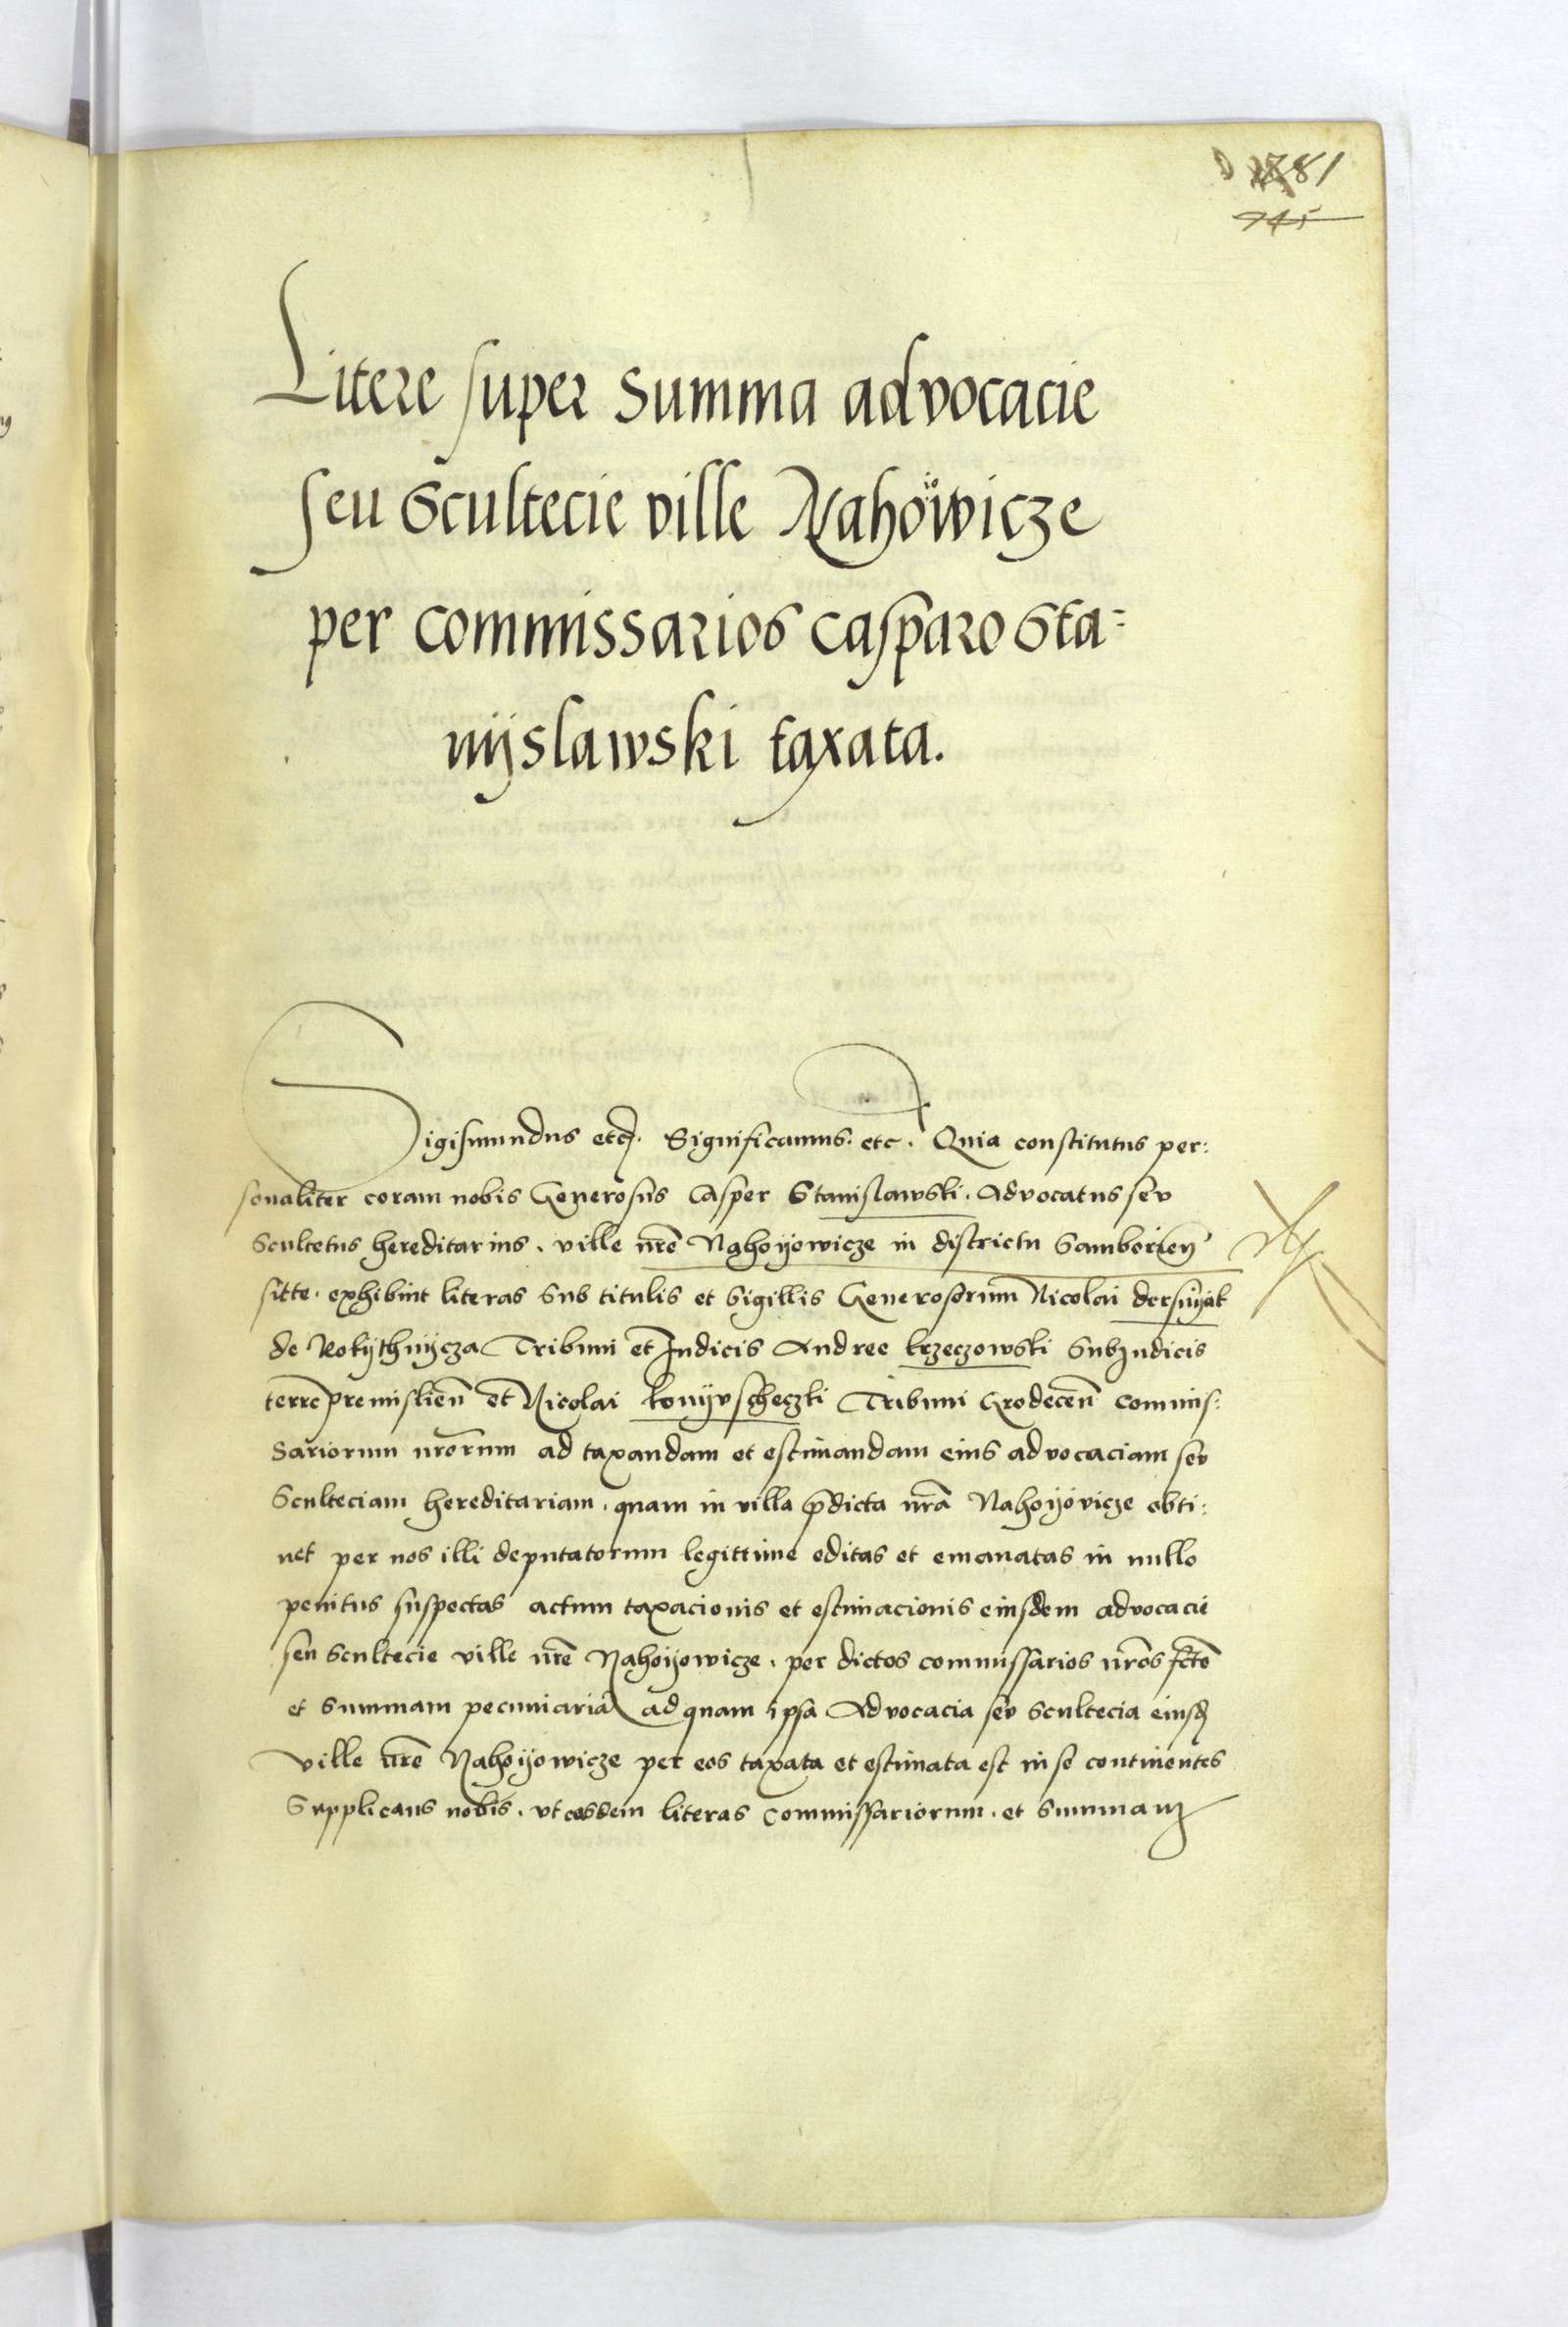 281
745
Litere super Summa advocacie
seu Scultecie ville Nahowicze
per commissarios Casparo Sta=
nyslawski taxata.
Sigismundus etc. Significamus. etc. Quia constitutus per:
sonaliter coram nobis Generosus Casper Stanislawski. Advocatus seu
Scultetus hereditarius. ville nre Nahoyowicze in districtu Samborien
sitte. exhibuit literas sub titulis et sigillis Generosorum Nicolai dersnyak
de Rokythnycza Tribuni et Iudicis Andree krzeczowski Subiudicis
terre premislien et Nicolai konyvscheczki Tribuni Grodecen commis:
sariorum nrorum ad taxandam et estimandam eius advocaciam seu
Sculteciam hereditariam. quam in villa pdicta nra Nahoyovicze obti:
net per nos illi deputatorum legittime editas et emanatas in nullo
penitus suspectas actum taxacionis et estimacionis eiusdem advocacie
seu scultecie ville nre Nahoyowicze. per dictos commissarios nros fcto
et summam pecuniaria ad quam ipsa Advocacia seu scultecia eiusd
ville nre Nahoyowicze per eos taxata et estimata est in se continentes
Supplicans nobis. vt easdem literas commissariorum. et summam